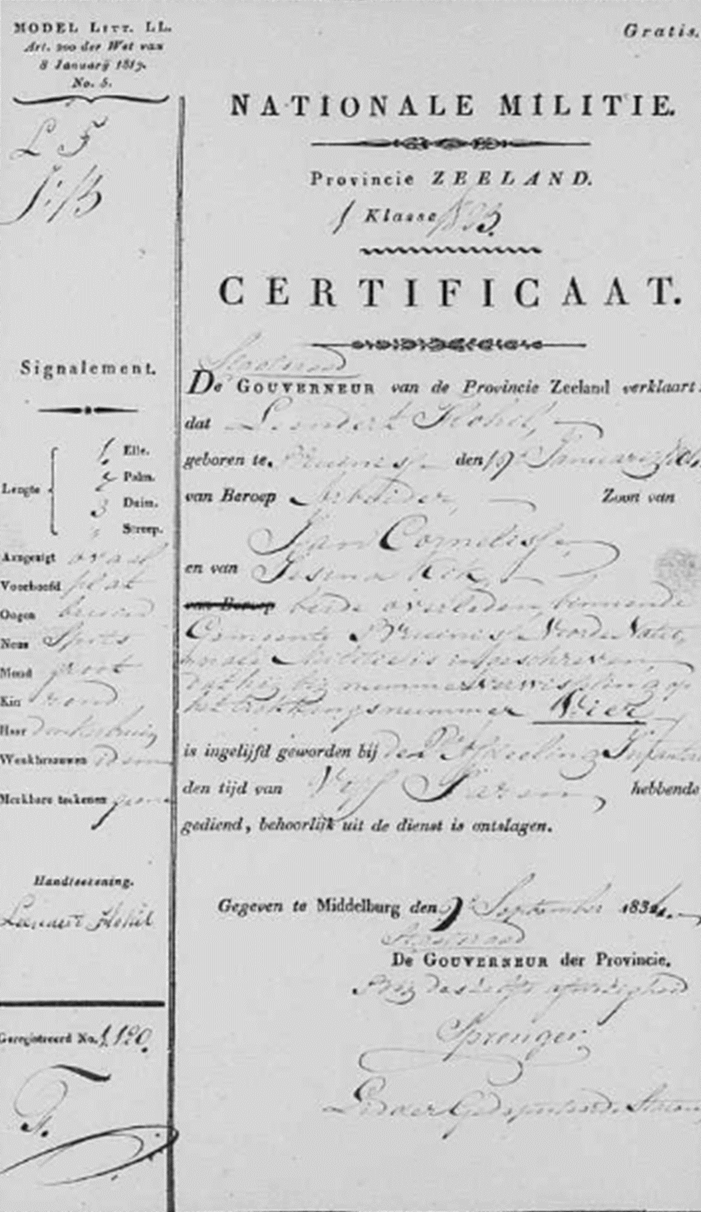 MODEL LITT. LL.
Art. 200 der Wet van
8 Januarij 1817.
No. 5.
Gratis.
NATIONALE MILITIE.
Provincie ZEELAND.
1 Klasse 1823.
CERTIFICAAT.
Signalement.
Lengte
1 Elle.
Palm.
3 Duim.
" Streep.
Aangezigt ovaal
Voorhoofd plat
Oogen bruin
Neus Spits
Mond groot
Kin rond
Haar donkerbruin
Wenkbraauwen idem
Merkbare teekenen geene
Handteekening.
Leendert Hokil
Geregistreerd No. 1,120.
Staatsraad
De GOUVERNEUR van de Provincie Zeeland verklaart:
dat Leendert Hokil,
geboren te Bruinisse den 19e Januarij
van Beroep Arbeider, Zoon van
Jan Cornelisse,
en van Kik,
van Beroep beide overleden, binnen de
Gemeente Bruinisse voor de Natio,
nale Militie is ingeschreven,
dat hij bij nummerverwisseling op
het trekkingsnummer Vier
is ingelijfd geworden bij de Afdeeling Infanterie
den tijd van Vijf Jaren, hebbende
gediend, behoorlijk uit de dienst is ontslagen.
Gegeven te Middelburg den 9e September 183
Staatsraad
De GOUVERNEUR der Provincie.
Bij deszelfs afwezigheid
Sprenger
Lid der Gedeputeerde Staten